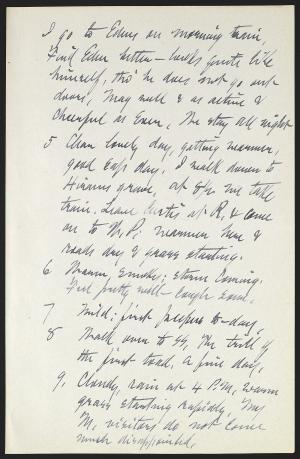 I go to Edens on morning train,
Find Eden better – looks quite like
himself, tho' he does not go out
doors, Mag well & as active &
cheerful as Ever, We stay all night
5 Clear lovely day, getting warmer,
good sap day. I walk down to
Hirams grave, at 8½ we take
train. Leave Curtis at R. & come
on to W.P.; warmer here &
roads dry & grass starting.
6 Warm, smoky; storm coming.
Feel pretty well – cough some.
7 Mild; first peepers to-day,
8 Walk over to SS, The trill of
the first toad. A fine day,
9, Cloudy, rain at 4 P.M, warm
grass starting rapidly, My
M. visitors do not come
much disappointed,